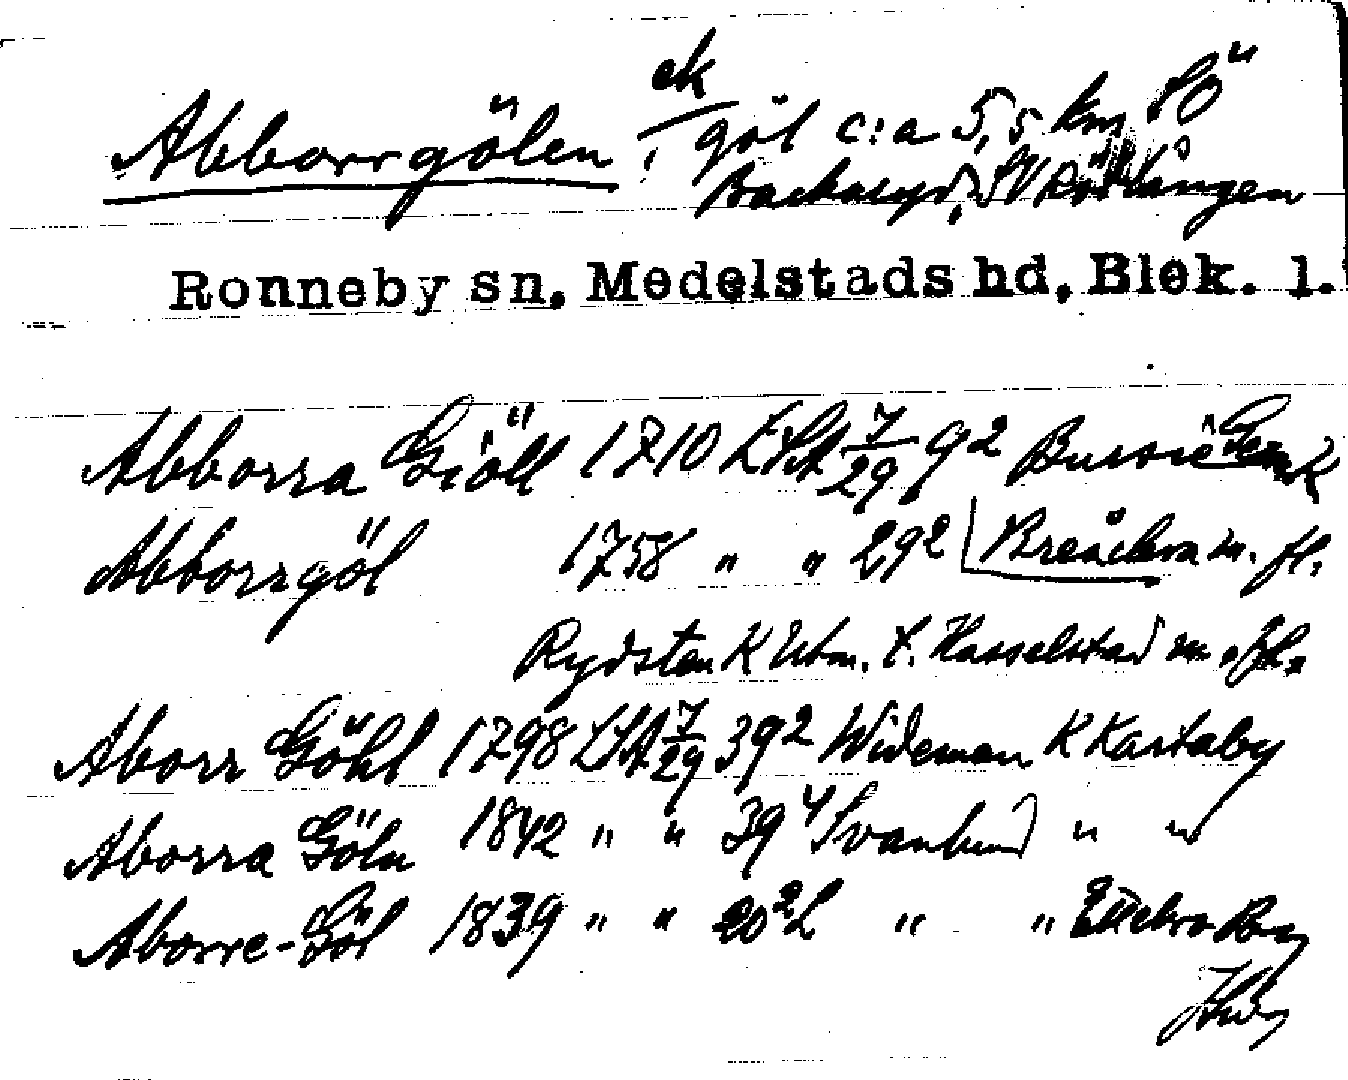 ek
Abborrgölen, göl c:a 5,5 km SÖ
Backaryd, SV Rödlången
Ronneby sn, Medelstads hd, Blek. l.
Abborra Giöll 1710 LSA 7/29 g2
Abborrgöl 1758 " " 29 2 Breåkra m. fl.
Rydsten K Utm. t. Hasselstad m. fl.
Aborr Göhl 1798 LSA 7/29 39 2 Wideman K Kartaby
Aborra Göln 1842 " " 39 4 Svanlund " "
Aborre-Göl 1839 " " 20 2 L " "